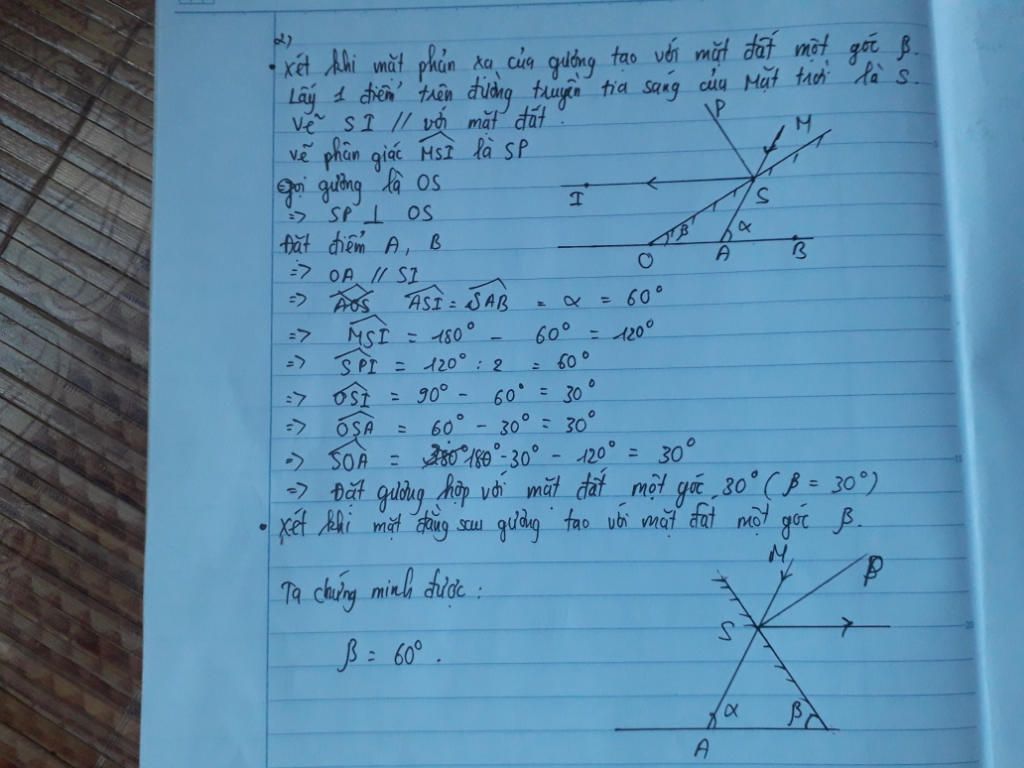 2)
• Xét khi mặt phản xạ của gương tạo với mặt đất một góc β.
Lấy 1 điểm trên đường truyền tia sáng của Mặt trời là S.
Vẽ SI // với mặt đất.
Vẽ phân giác MSI là SP
Gọi gương là OS
=> SP ⊥ OS
Đặt điểm A, B
=> OA // SI
=> AOS ASI = SAB = α = 60°
=> MSI = 180° - 60° = 120°
=> SPI = 120° : 2 = 60°
=> OSI = 90° - 60° = 30°
=> OSA = 60° - 30° = 30°
=> SOA = 180° - 30° - 120° = 30°
=> Đặt gương hợp với mặt đất một góc 30° (β = 30°)
• Xét khi mặt đằng sau gương tạo với mặt đất một góc β.
Ta chứng minh được:
β = 60°.
P
M
I
S
β
α
O
A
B
M
P
S
α
β
A